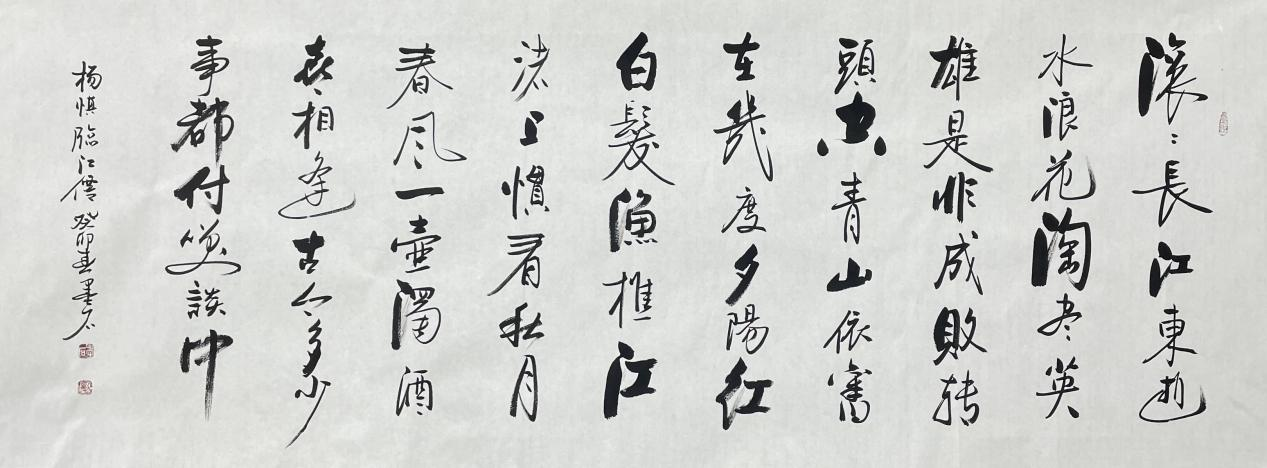 滾〻長江東逝
水浪花淘尽英
雄是非成敗转
頭空青山依舊
在幾度夕陽红
白髮漁樵江
渚上慣看秋月
春风一壶濁酒
喜相逢古今多少
事都付笑談中
杨慎臨江僊癸卯春墨石